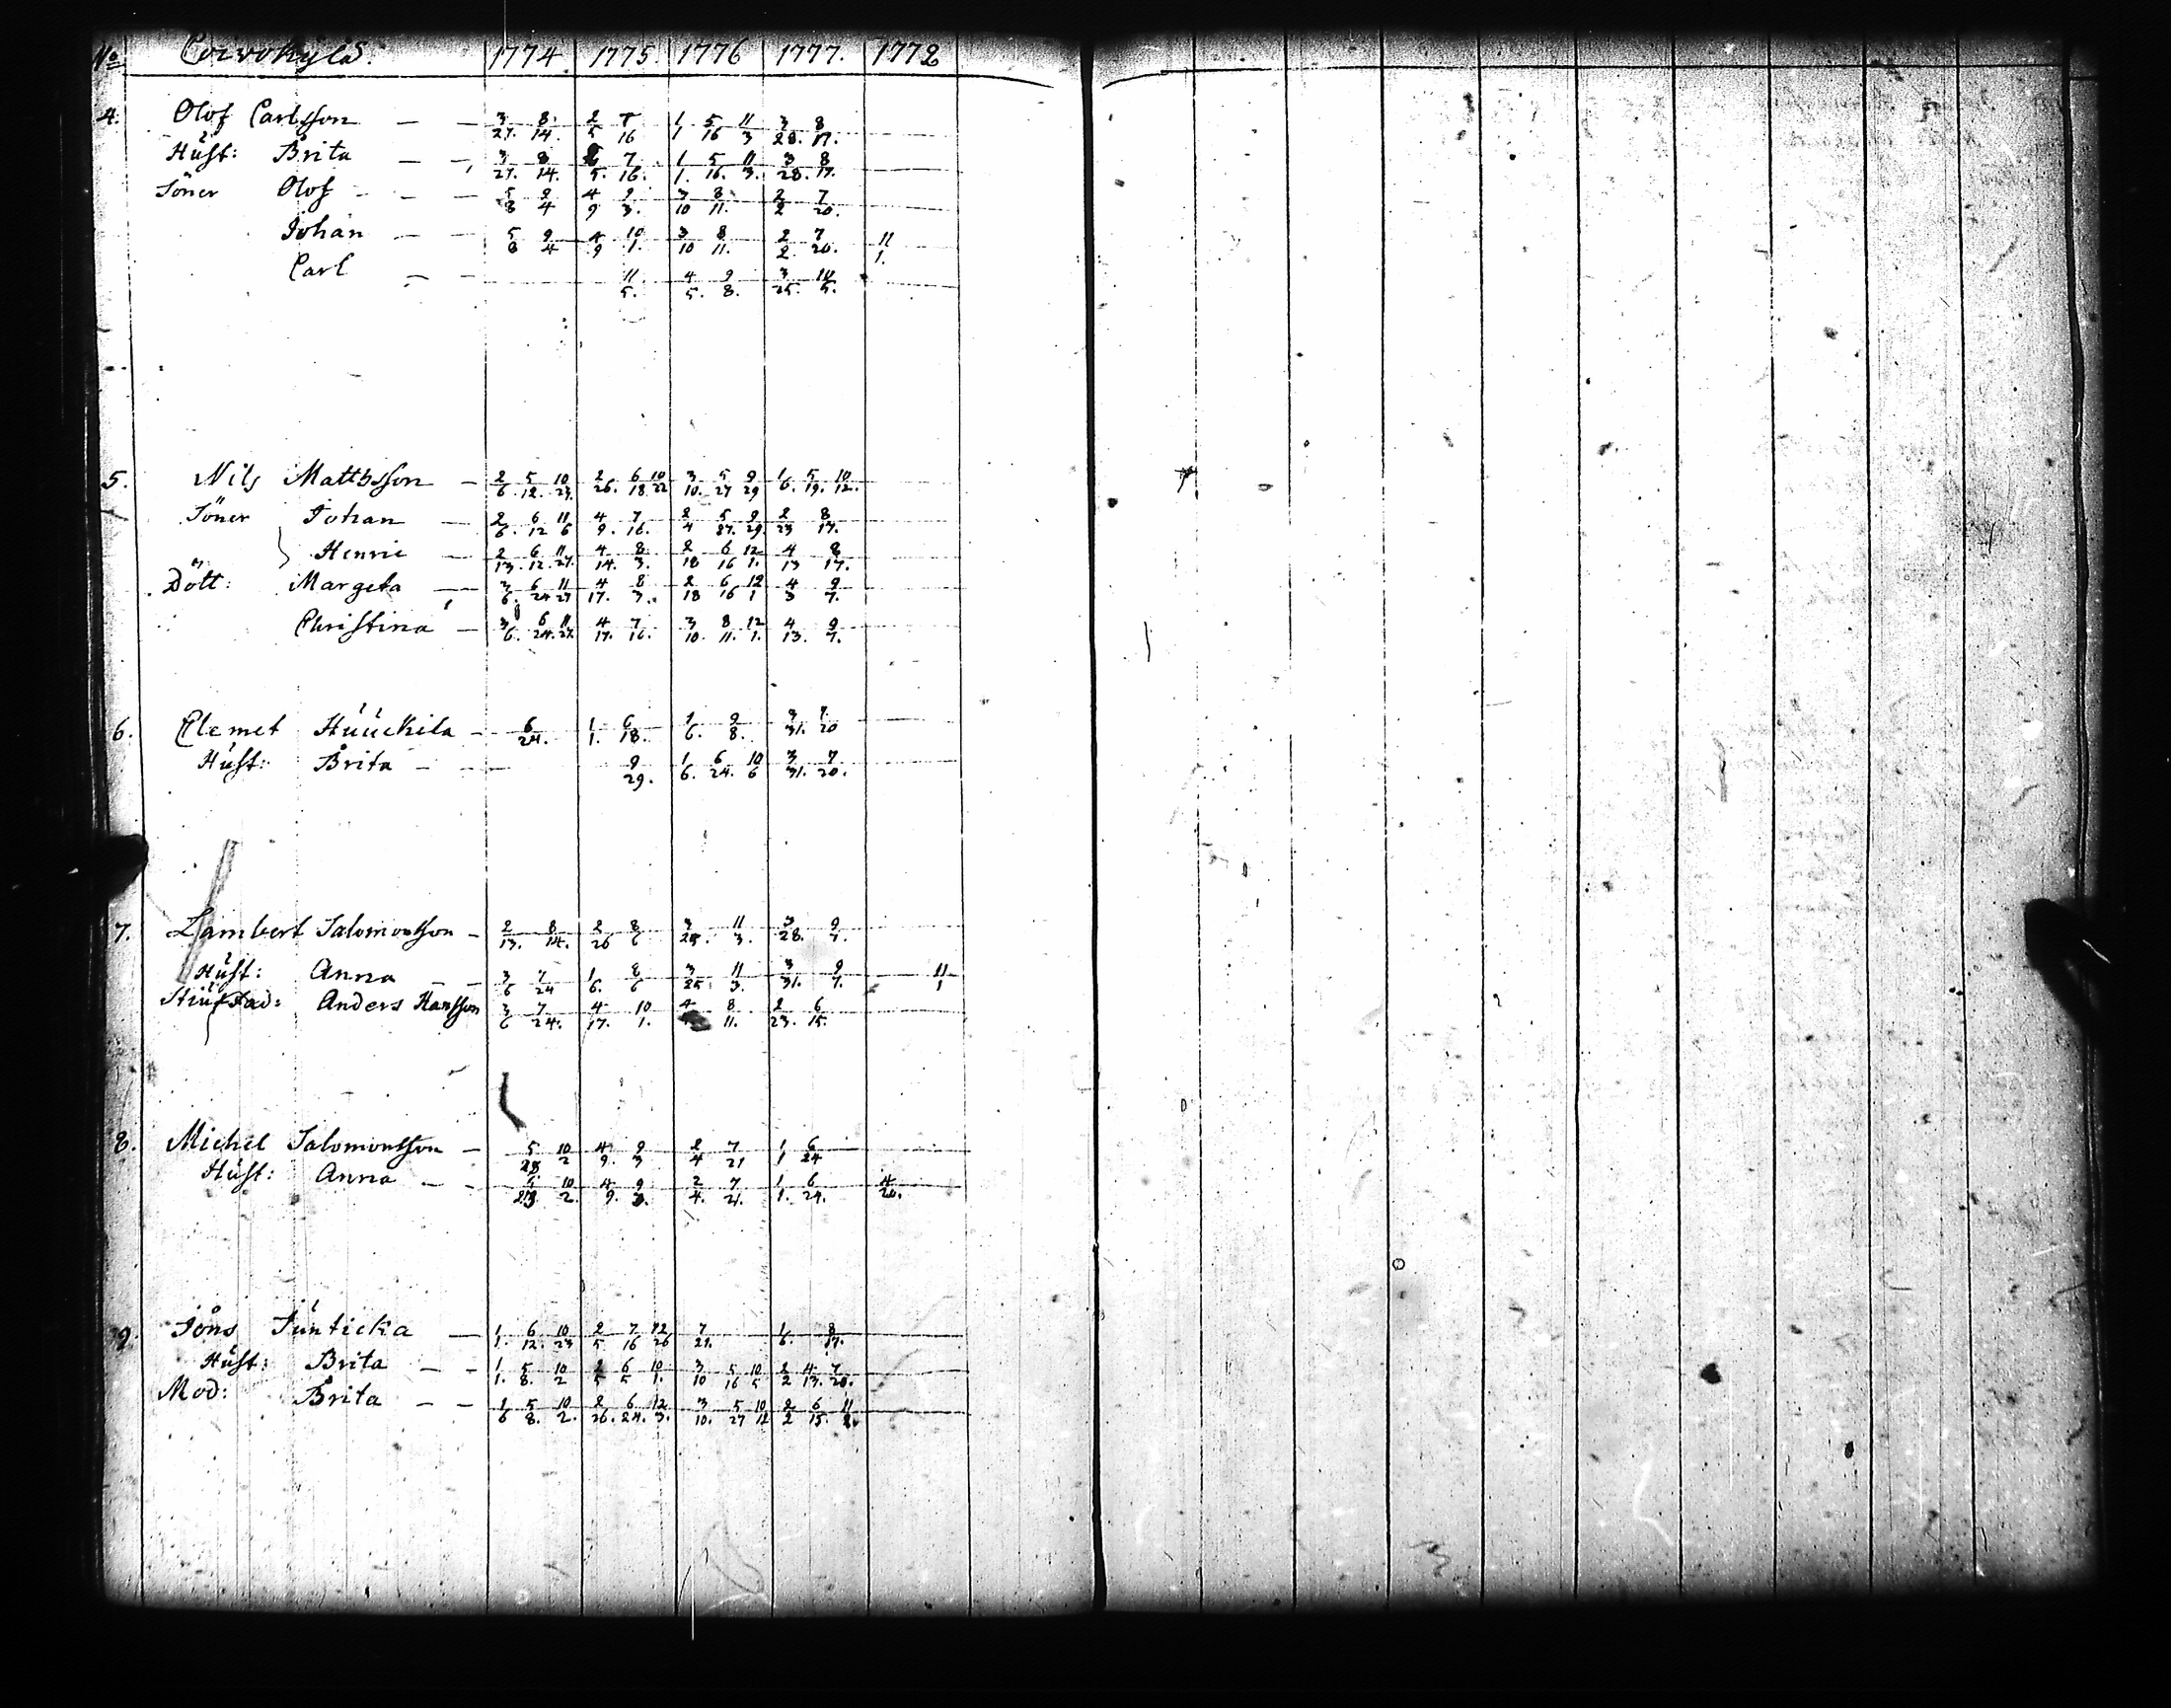 No Coivokylä. 1774 1775 1776 1777. 1772
4. Olof Carlsson — — 3/27. 8/14 2/5 7/16 1/1 5/16 11/3 3/28. 8/17.
Hust: Brita — — 3/27. 8/14. 7/16. 1/1. 5/16. 11/3. 3/28. 8/17.
Söner Olof — — 5/8 9/4 4/9 9/3. 3/10 8/11. 2/2 7/20.
Johan — — 5/8 9/4 4/9 10/1. 3/10 8/11. 2/2. 7/20. 11/1.
Carl — — 11/5. 4/5. 9/8. 3/25. 10/5.
5. Nils Mattsson — 2/6. 5/12. 10/23. 2/26. 6/18. 10/22 3/10. 5/27 9/29 1/6. 5/19. 10/12.
Söner Johan — 2/6. 6/12 11/6 4/9. 7/16. 2/4 5/27. 9/29. 2/23 8/17.
Henric — 2/13. 6/12. 11/27. 4/14. 8/3. 2/18 6/16 12/1. 4/13 8/17.
Dött: Margeta — 3/6. 6/24 11/27 4/17. 8/3. 2/18 6/16 12/1 4/3 9/7.
Christina — 3/6. 6/24. 11/27. 4/17. 7/16. 3/10. 8/11. 12/1. 4/13. 9/7.
6. Clemet Huuckila — 6/24. 1/1. 6/18. 1/6. 9/8. 3/31. 7/20
Hust: Brita — — 9/29. 1/6. 6/24. 10/6 3/31. 7/20.
7. Lambert Salomonsson — 2/13. 8/14. 2/26 8/6 3/25. 11/3. 3/28. 9/7.
Hust: Anna — — 3/6 7/24 1/6. 8/6 3/25 11/3. 3/31. 9/7. 11/1
Stiuffad: Anders Hansson 3/6 7/24. 4/17. 10/1. 8/11. 2/23. 6/15.
8. Michel Salomonsson — 5/28 10/2 4/9. 9/3 2/4 7/21 1/1 6/24
Hust: Anna — — 10/2. 4/9. 9/3. 2/4. 7/21. 1/1. 6/24. 4/20.
9. Jöns Junticka — 1/1. 6/12. 10/23 2/5 7/16 12/26 7/21. 1/6. 8/17.
Hust: Brita — — 1/1. 5/8. 10/2 2/5 6/5 10/1. 3/10 5/16 10/5 2/2 4/13. 7/20.
Mod: Brita — — 1/6 5/8. 10/2. 2/26. 6/24. 12/3. 3/10. 5/27 10/12 2/2 6/15.